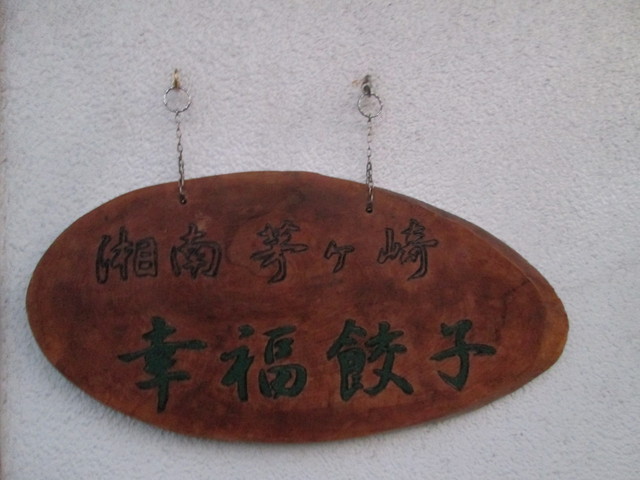 湘南茅ヶ崎
幸福餃子